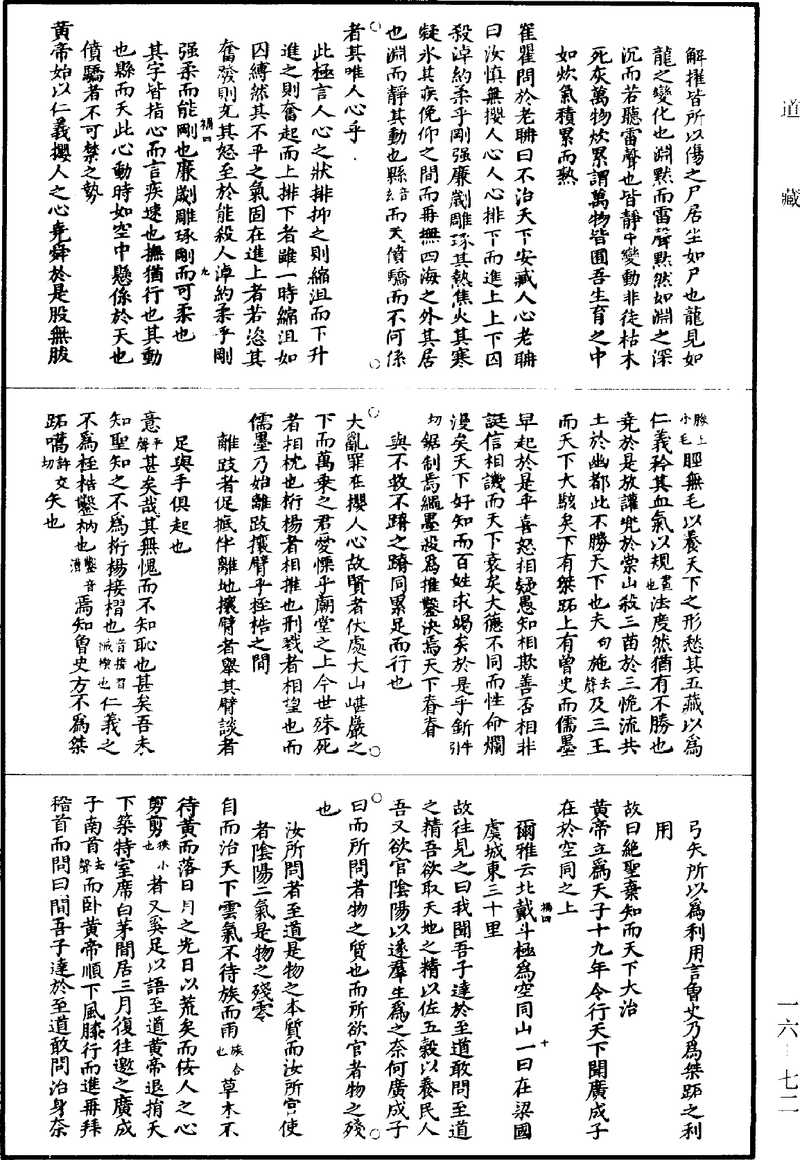 道藏
解擢皆所以傷之尸居坐如尸也龍見如
龍之變化也淵默而雷聲默然如淵之深
沉而若聽雷聲也皆靜中變動非徒枯木
死灰萬物炊累謂萬物皆囿吾生育之中
如炊氣積累而熟
崔瞿問於老聃曰不治天下安藏人心老聃
曰汝慎無攖人心人心排下而進上上下囚
殺淖約柔乎剛强廉劌雕琢其熱焦火其寒
凝氷其疾俛仰之間而再撫四海之外其居
也淵而靜其動也縣音而天僨驕而不可係
者其唯人心乎
此極言人心之狀排抑之則縮沮而下升
進之則奮起而上排下者雖一時縮沮如
囚縛然其不平之氣固在進上者若恣其
奮發則充其怒至於能殺人淖約柔乎剛
强柔而能剛也廉劌雕琢剛而可柔也
其字皆指心而言疾速也撫猶行也其動
也縣而天此心動時如空中懸係於天也
僨驕者不可禁之勢
黄帝始以仁義攖人之心堯舜於是股無胈
胈上小毛脛無毛以養天下之形愁其五藏以為
仁義矜其血氣以規畫也法度然猶有不勝也
堯於是放讙兜於崇山殺三苗於三峗流共
土於幽都此不勝天下也夫句施去聲及三王
而天下大駭矣下有桀跖上有曾史而儒墨
早起於是乎喜怒相疑愚知相欺善否相非
誕信相譏而天下衰矣大德不同而性命爛
漫矣天下好知而百姓求竭矣於是乎釿引件
切鋸制焉繩墨殺焉推鑿決焉天下脊脊
與不救不蹐之蹐同累足而行也
大亂罪在攖人心故賢者伏處大山嵁巖之
下而萬乗之君憂慄乎廟堂之上今世殊死
者相枕也桁楊者相推也刑戮者相望也而
儒墨乃始離跂攘臂乎桎梏之間
離跂者促摭伴離地攘臂者舉其臂談者
足與手俱起也
意平聲甚矣哉其無愧而不知恥也甚矣吾未
知聖知之不為桁楊接槢也音接習減楔也仁義之
不為桎梏鑿枘也鑿音漕焉知曾史方不為桀
跖嚆許交切矢也
弓矢所以為利用言曾史乃為桀跖之利
用
故曰絕聖棄知而天下大治
黄帝立為天子十九年令行天下聞廣成子
在於空同之上
爾雅云北戴斗極為空同山一曰在梁國
虞城東三十里
故往見之曰我聞吾子達於至道敢問至道
之精吾欲取天地之精以佐五穀以養民人
吾又欲官陰陽以遂羣生為之奈何廣成子
曰而所問者物之質也而所欲官者物之殘
也
汝所問者至道是物之本質而汝所官使
者陰陽二氣是物之殘零
自而治天下雲氣不待族而雨族合也草木不
待黄而落日月之光日以荒矣而佞人之心
翦翦狹小也者又奚足以語至道黄帝退捐天
下築特室席白茅間居三月復往邀之廣成
子南首去聲而卧黄帝順下風膝行而進再拜
稽首而問曰聞吾子達於至道敢問治身奈
禍四
九
禍四
十
一六-七二